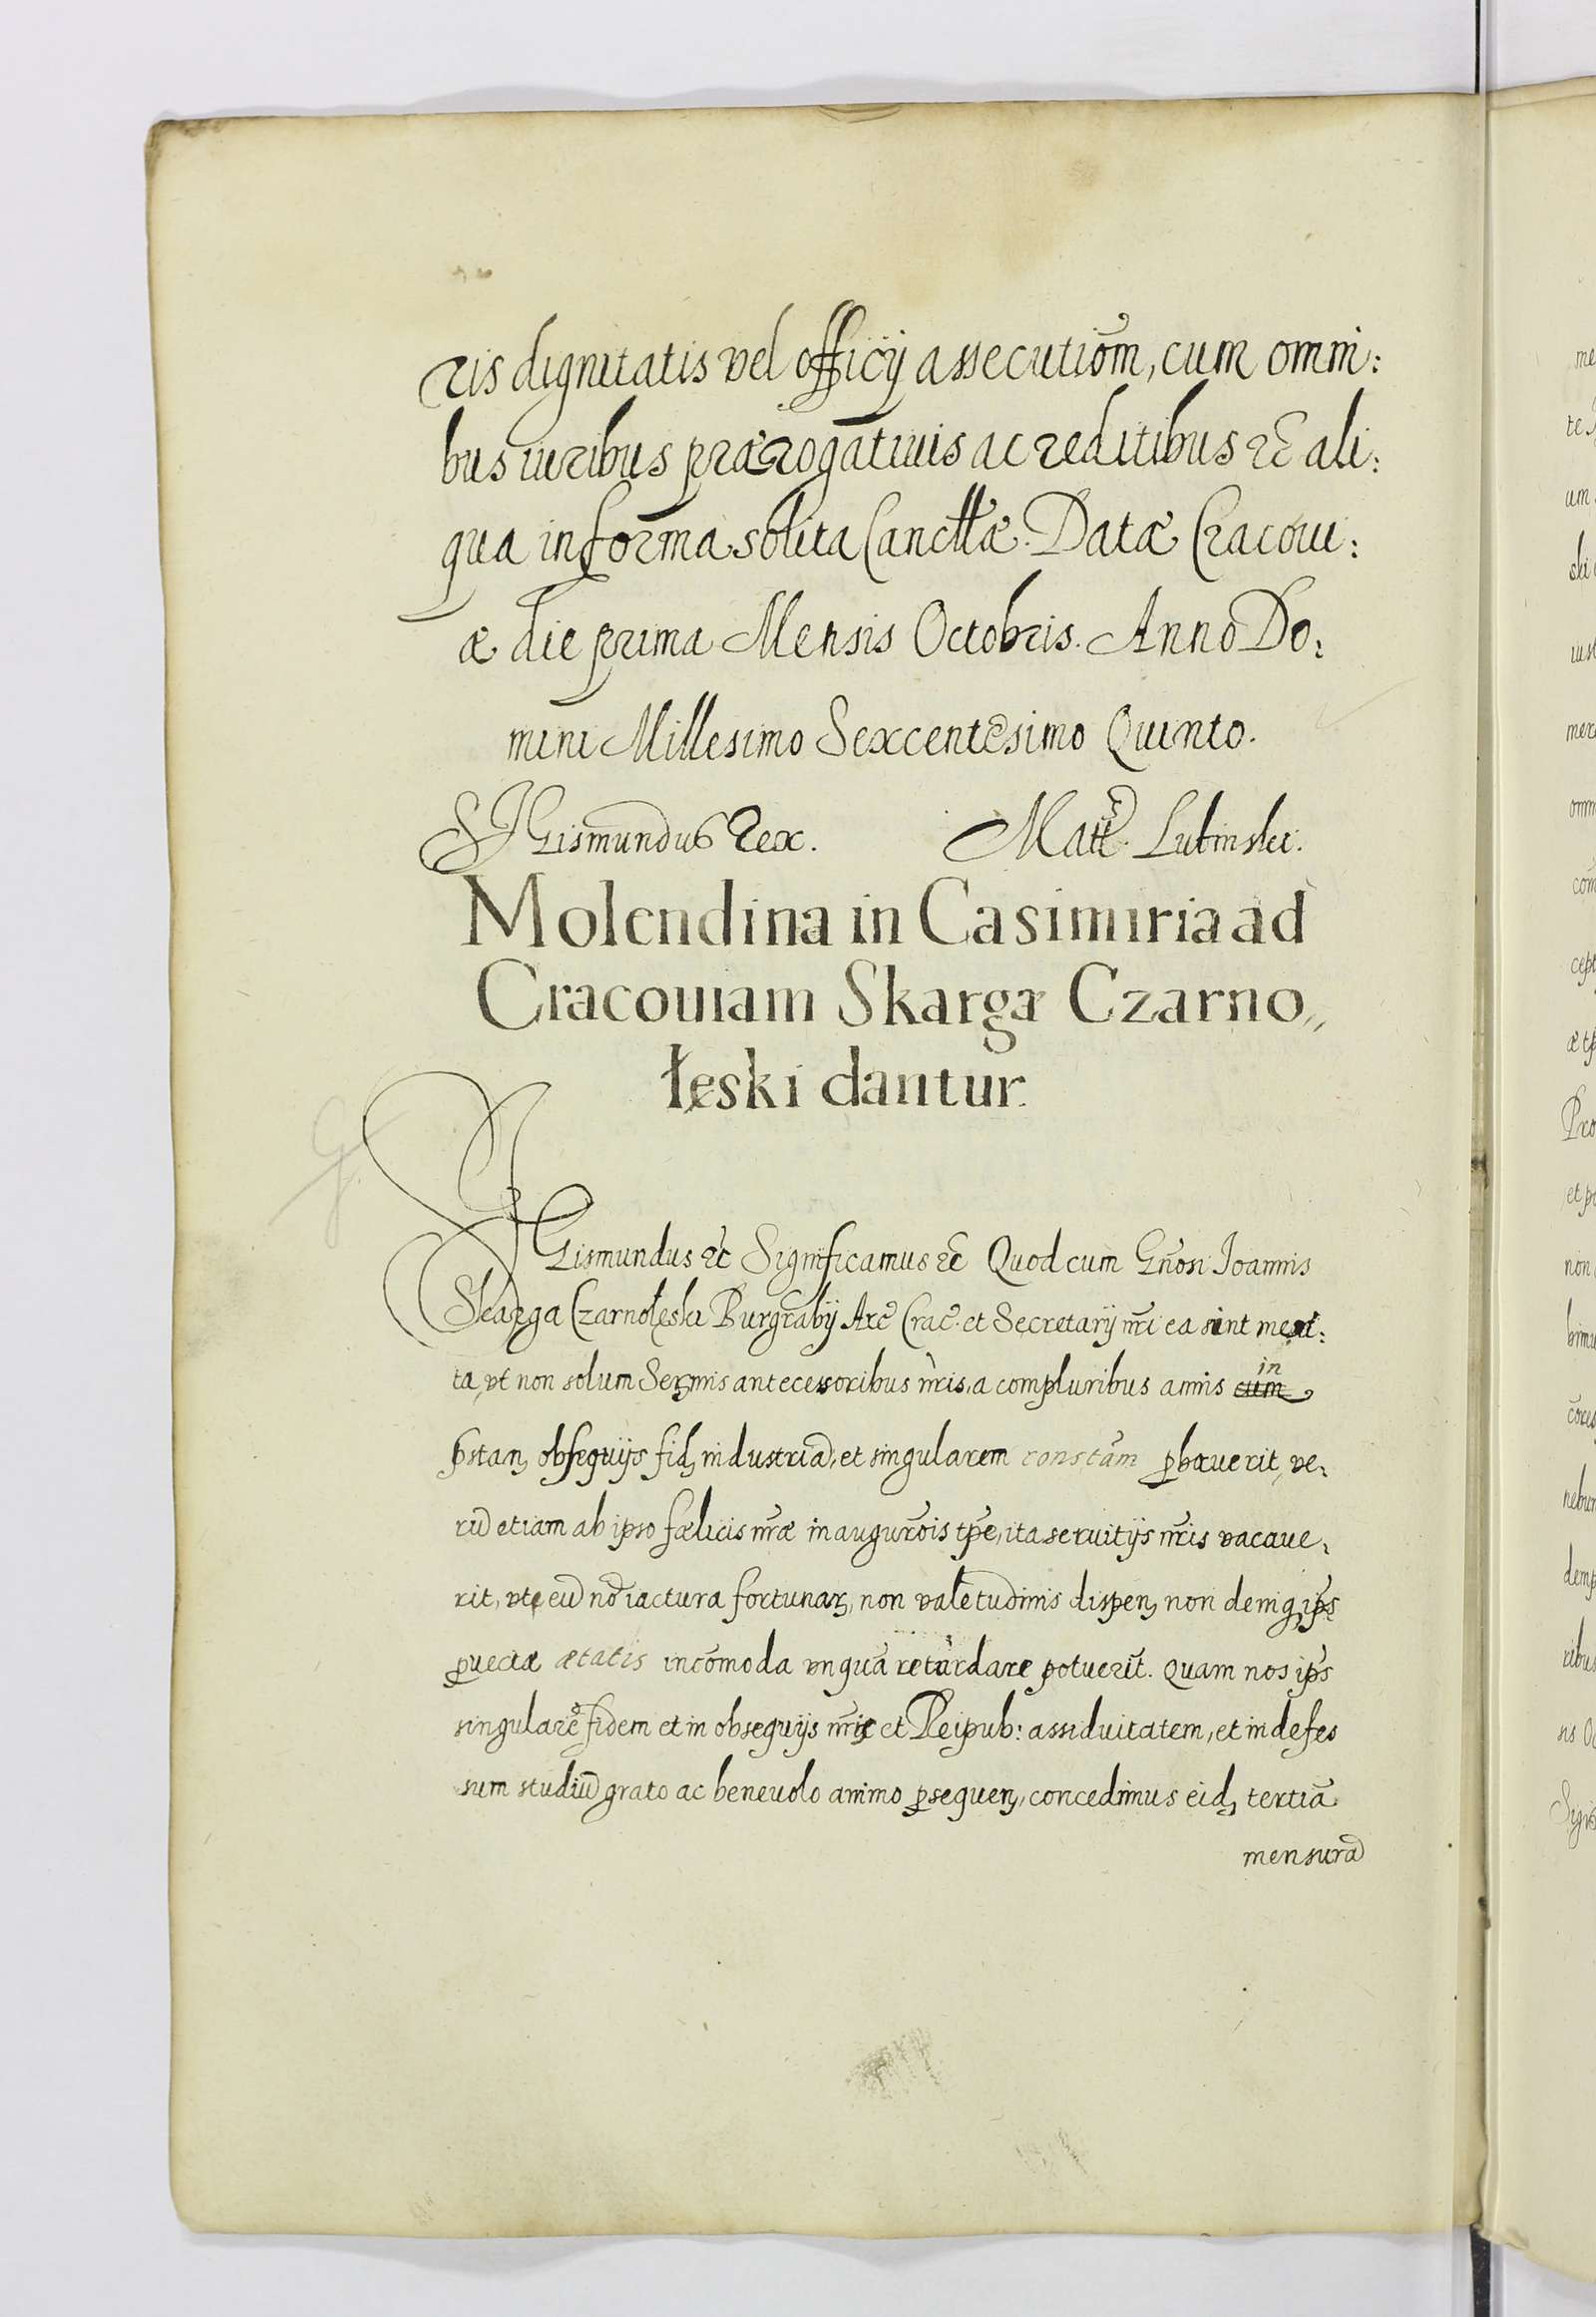 ris dignitatis vel officij assecutiõm, cum omni:
bus iuribus prærogatiuis ac reditibus &c ali:
qua in forma solita Canctlæ. Datæ Cracoui:
æ die prima Mensis Octobris. Anno Do:
mini Millesimo Sexcentesimo Quinto.
SJGismundus Rex. Matt. Lubinski.
Molendina in Casimiria ad
Cracouiam Skargæ Czarno„
łęski dantur.
SJGismundus &c Significamus &c Quod cum Gñosi Joannis
Skarga Czarnołęski Burgrabij Arc̃ Crac̃. et Secretarij nr̃i ea sint meri:
ta, vt non solum Serenmis antecessoribus nr̃is, a compluribus annis cum in
pstan, obsequijs fid, industriã, et singularem constãm pbauerit, ve:
rũ etiam ab ipso fælicis nr̃æ inaugurõis tp̃e, ita seruitijs nr̃is vacaue:
rit, vt eũ nõ iactura fortunar, non valetudinis dispen, non deniq ips
puectæ ætatis incõmoda vnquã retardare potuerit̃. Quam nos ip̃s
singularẽ fidem et in obsequijs nr̃is et Reipub: assiduitatem, et indefes
sum studiũ grato ac beneuolo animo pseguen, concedimus eid, tertiã
mensurã